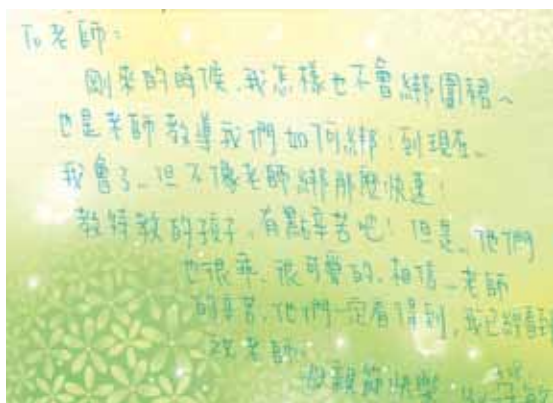 To老師：
剛來的時候、我怎樣也不會綁圍裙、
也是老師教導我們如何綁，到現在、
我會了、但不像老師綁那麼快速！
教特教的孩子、有點辛苦吧！但是、他們
也很乖、很可愛的、相信、老師
的辛苦、他們一定看得到，我已經看到
祝老師：
母親節快樂 By